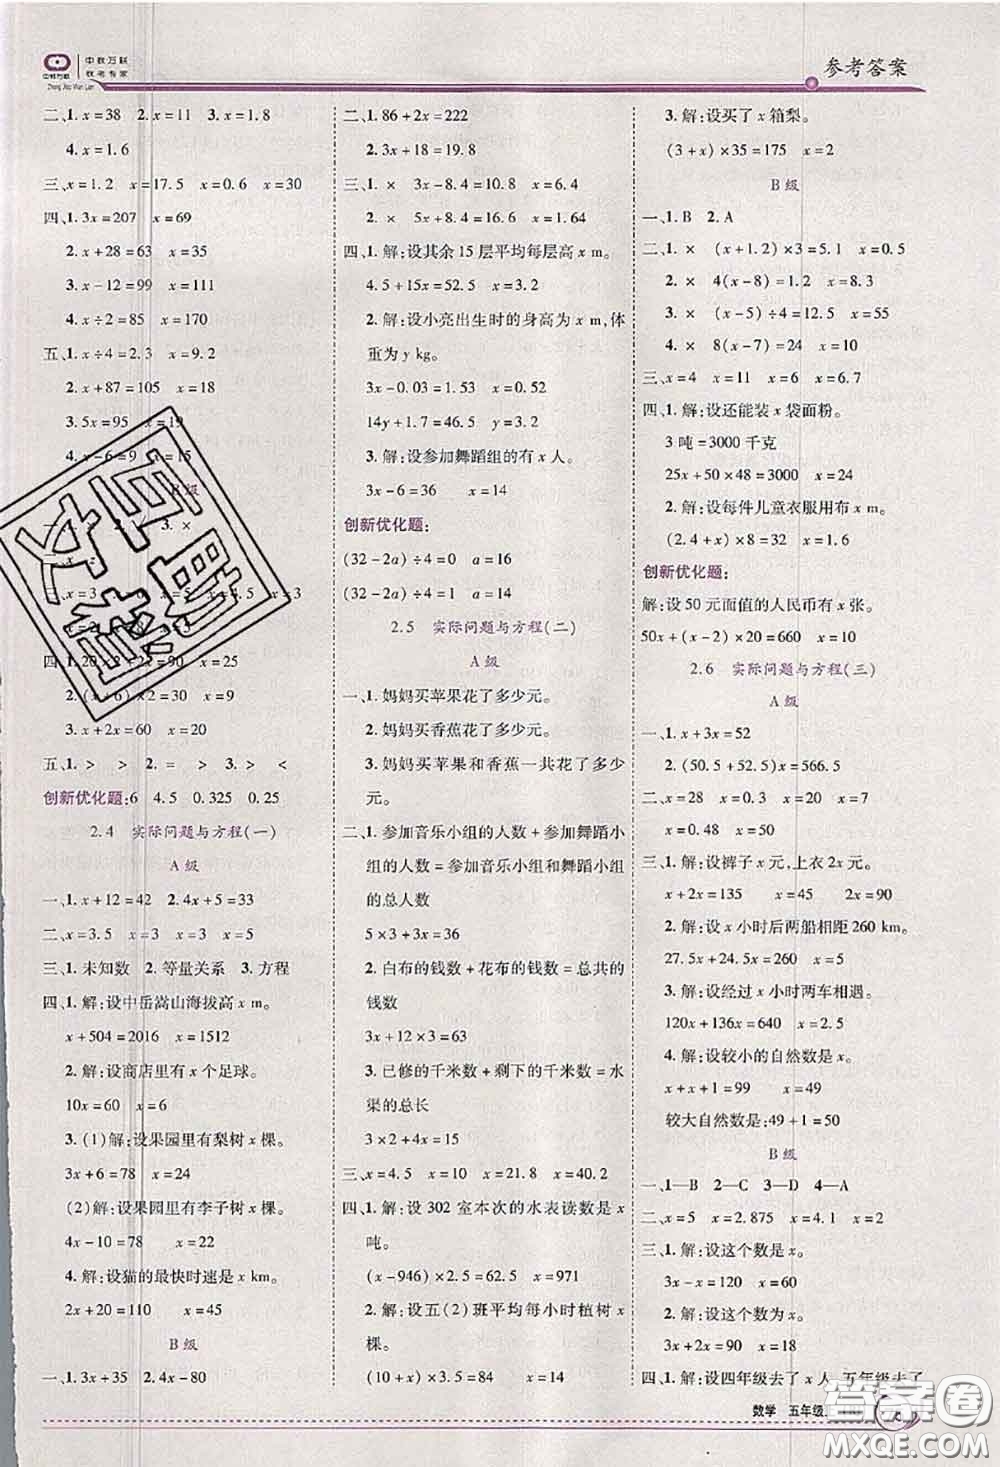 中教万联
中教万联
教考专家
Zhong Jiao Wan Lian
参考答案
二、1. x=38 2. x=11 3. x=1.8
4. x=1.6
三、x=1.2 x=17.5 x=0.6 x=30
四、1. 3x=207 x=69
2. x+28=63 x=35
3. x-12=99 x=111
4. x÷2=85 x=170
五、1. x÷4=2.3 x=9.2
2. x+87=105 x=18
3. 5x=95 x=19
4. x-6=9 x=15
B 级
3. ×
x=3
四、1. 20×2+2x=90 x=25
2. (x+6)×2=30 x=9
3. x+2x=60 x=20
五、1. > > 2. = > 3. > <
创新优化题:6 4.5 0.325 0.25
2.4 实际问题与方程(一)
A 级
一、1. x+12=42 2. 4x+5=33
二、x=3.5 x=3 x=3 x=5
三、1. 未知数 2. 等量关系 3. 方程
四、1. 解:设中岳嵩山海拔高 x m。
x+504=2016 x=1512
2. 解:设商店里有 x 个足球。
10x=60 x=6
3. (1)解:设果园里有梨树 x 棵。
3x+6=78 x=24
(2)解:设果园里有李子树 x 棵。
4x-10=78 x=22
4. 解:设猫的最快时速是 x km。
2x+20=110 x=45
B 级
一、1. 3x+35 2. 4x-80
二、1. 86+2x=222
2. 3x+18=19.8
三、1. × 3x-8.4=10.8 x=6.4
2. × 5x+8.4=16.6 x=1.64
四、1. 解:设其余 15 层平均每层高 x m。
4.5+15x=52.5 x=3.2
2. 解:设小亮出生时的身高为 x m,体
重为 y kg。
3x-0.03=1.53 x=0.52
14y+1.7=46.5 y=3.2
3. 解:设参加舞蹈组的有 x 人。
3x-6=36 x=14
创新优化题:
(32-2a)÷4=0 a=16
(32-2a)÷4=1 a=14
2.5 实际问题与方程(二)
A 级
一、1. 妈妈买苹果花了多少元。
2. 妈妈买香蕉花了多少元。
3. 妈妈买苹果和香蕉一共花了多少
元。
二、1. 参加音乐小组的人数+参加舞蹈小
组的人数=参加音乐小组和舞蹈小组
的总人数
5×3+3x=36
2. 白布的钱数+花布的钱数=总共的
钱数
3x+12×3=63
3. 已修的千米数+剩下的千米数=水
渠的总长
3×2+4x=15
三、x=4.5 x=10 x=21.8 x=40.2
四、1. 解:设 302 室本次的水表读数是 x
吨。
(x-946)×2.5=62.5 x=971
2. 解:设五(2)班平均每小时植树 x
棵。
(x+10)×2.6=78 x=20
3. 解:设买了 x 箱梨。
(3+x)×35=175 x=2
B 级
一、1. B 2. A
二、1. × (x+1.2)×3=5.1 x=0.5
2. × 4(x-8)=1.2 x=8.3
3. × (x-5)÷4=12.5 x=55
4. × 8(x-7)=24 x=10
三、x=4 x=11 x=6 x=6.7
四、1. 解:设还能装 x 袋面粉。
3 吨=3000 千克
25x+50×48=3000 x=24
2. 解:设每件儿童衣服用布 x m。
(2.4+x)×8=32 x=1.6
创新优化题:
解:设 50 元面值的人民币有 x 张。
50x+(x-2)×20=660 x=10
2.6 实际问题与方程(三)
A 级
一、1. x+3x=52
2. (50.5+52.5)x=566.5
二、x=28 x=0.3 x=20 x=7
x=0.48 x=10
三、1. 解:设裤子 x 元,上衣 2x 元。
x+2x=135 x=45 2x=90
2. 解:设 x 小时后两船相距 260 km。
27.5x+24.5x=260 x=5
3. 解:设经过 x 小时两车相遇。
120x+136x=640 x=2.5
4. 解:设较小的自然数是 x。
x+x+1=99 x=49
较大自然数是:49+1=50
B 级
一、1—B 2—C 3—D 4—A
二、x=5 x=2.875 x=4.1 x=2
三、1. 解:设这个数是 x。
3x-x=120 x=60
2. 解:设这个数为 x。
3x+2x=90 x=18
四、1. 解:设四年级去了 x 人,五年级去了
数学 五年级
答案圈
MXQE.COM